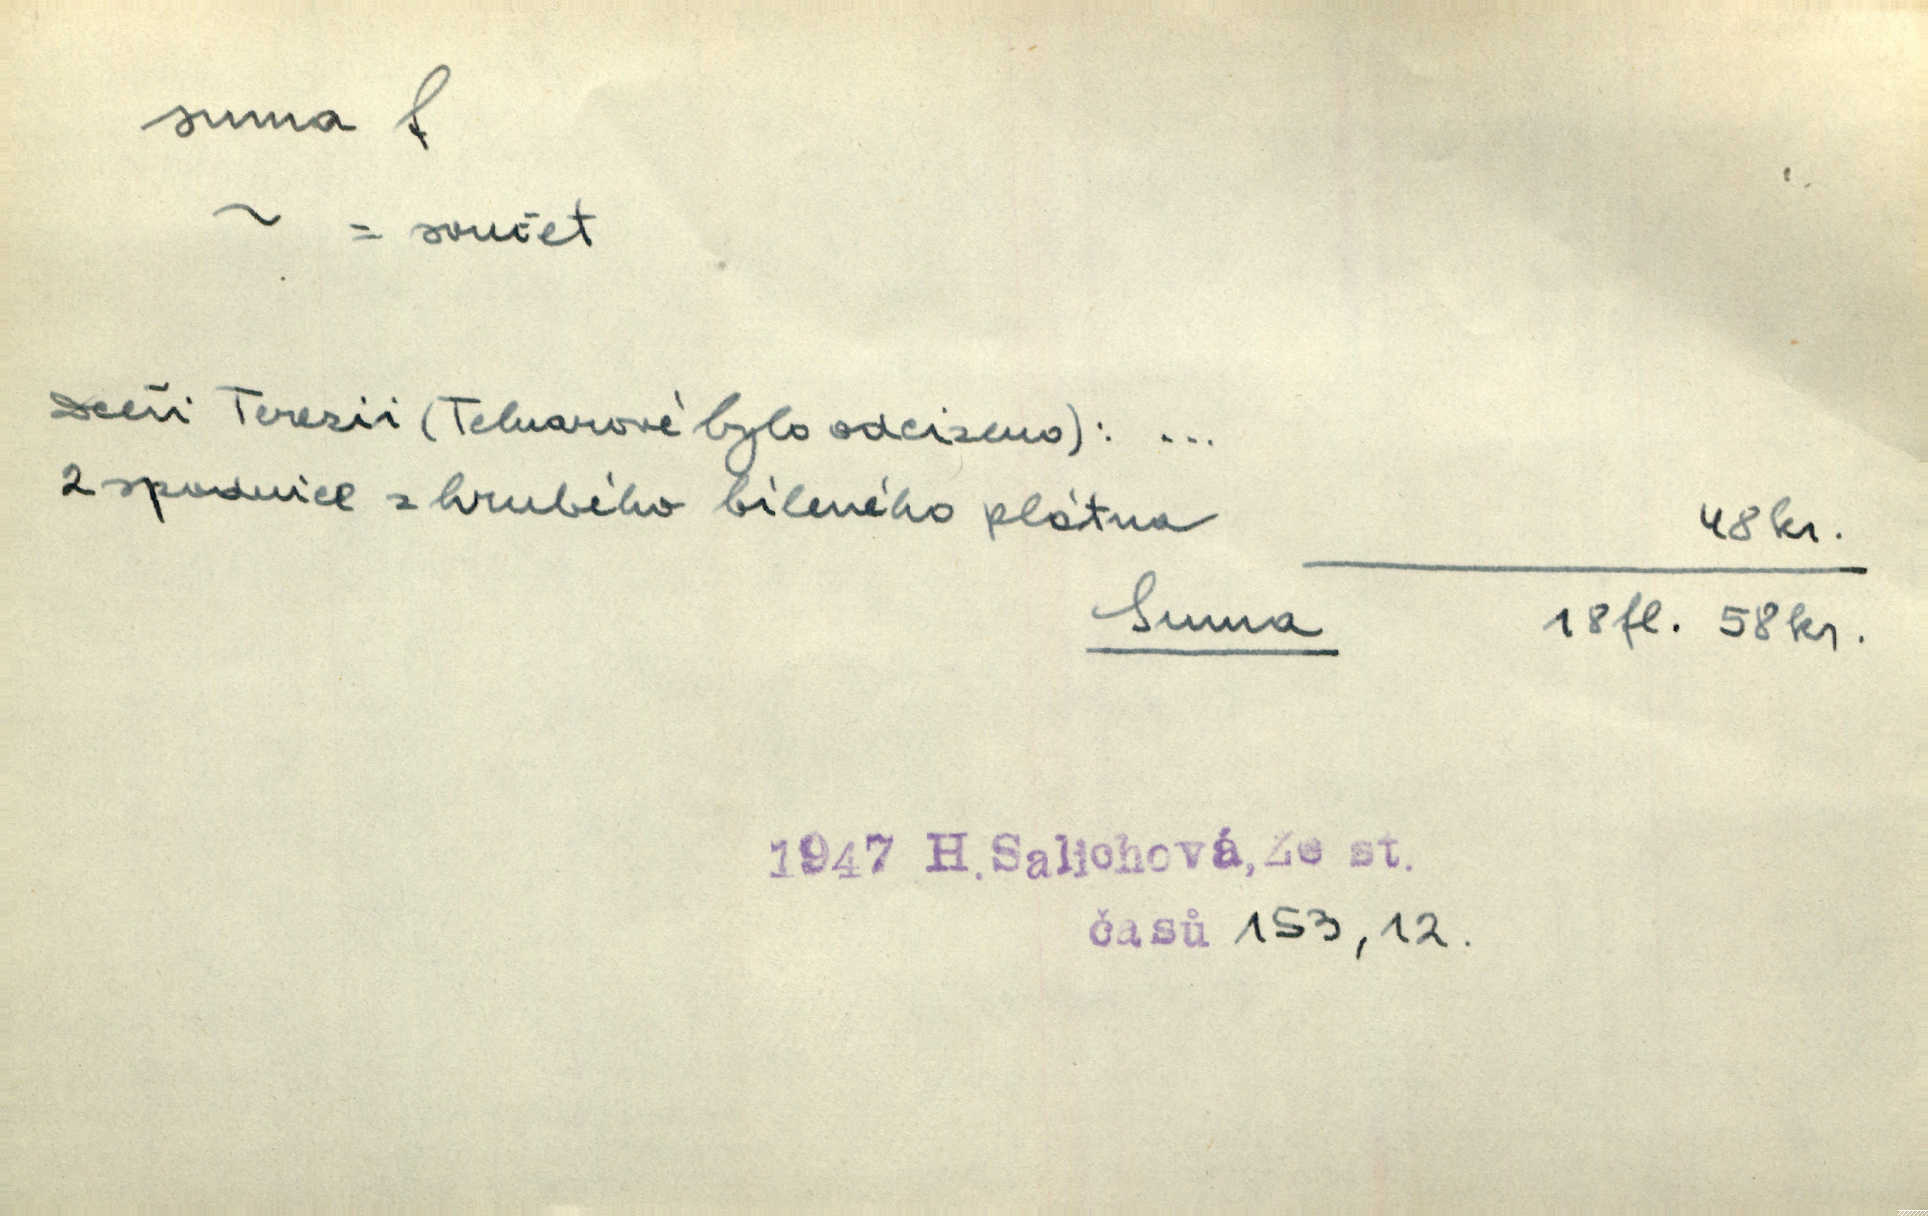 suma f
~ = součet
Dceři Terezii (Telnarové bylo odcizeno): ...
2 spodnice z hrubého bíleného plátna 48 kr.
Suma 18 fl. 58 kr.
1947 H. Salichová, Ze st.
časů 153, 12.